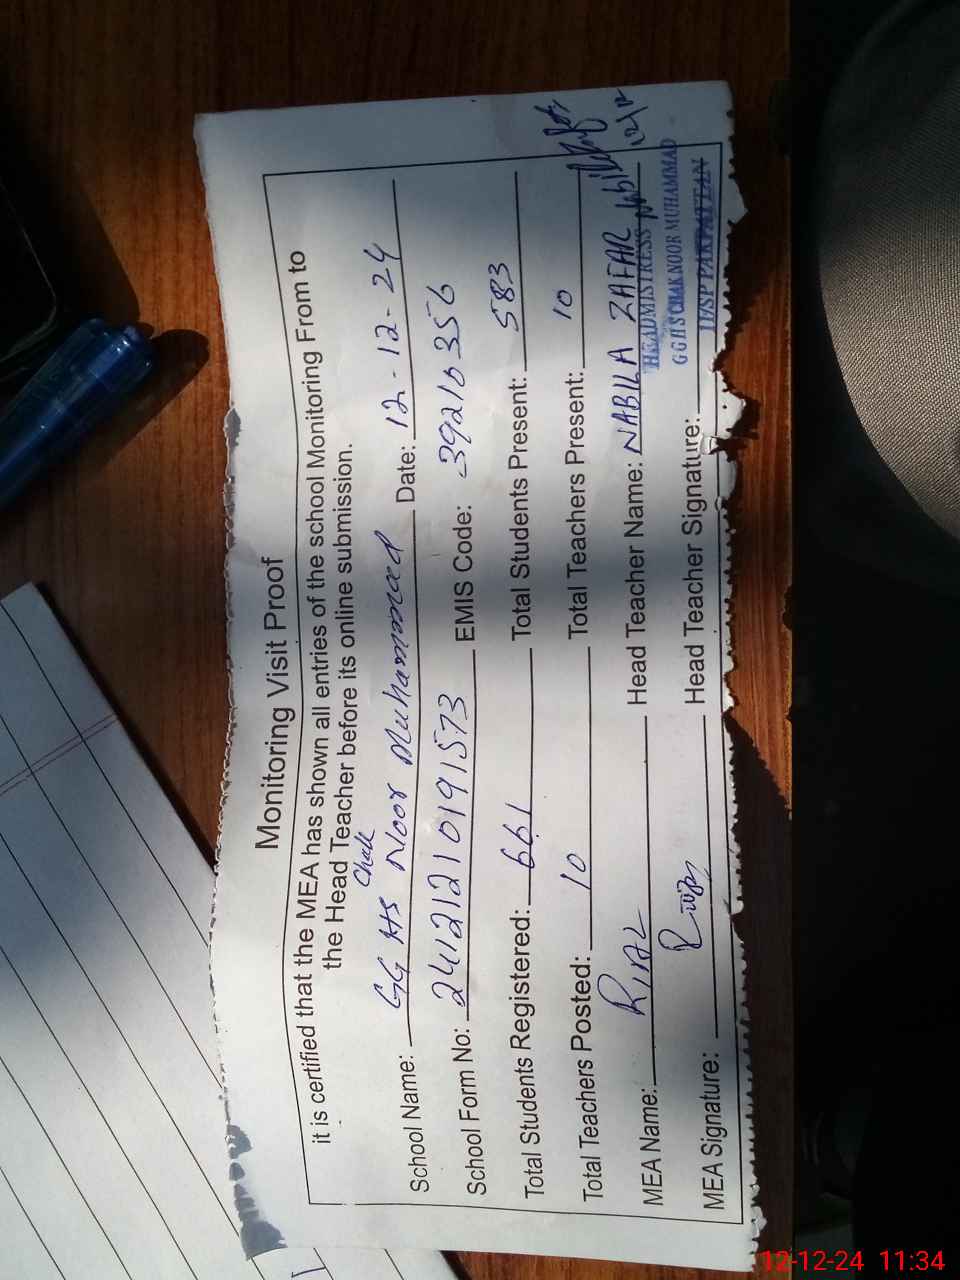 Monitoring Visit Proof
it is certified that the MEA has shown all entries of the school Monitoring From to
the Head Teacher before its online submission.
School Name: GGHS Chak Noor Muhammad Date: 12-12-24
School Form No: 24121210191573 EMIS Code: 39210356
Total Students Registered: 661 Total Students Present: 583
Total Teachers Posted: 10 Total Teachers Present: 10
MEA Name: Head Teacher Name: NABILA ZAFAR
HEADMISTRESS
GGHS CHAK NOOR MUHAMMAD
MEA Signature: Head Teacher Signature:
PAKPATTAN
12/12
12-12-24 11:34